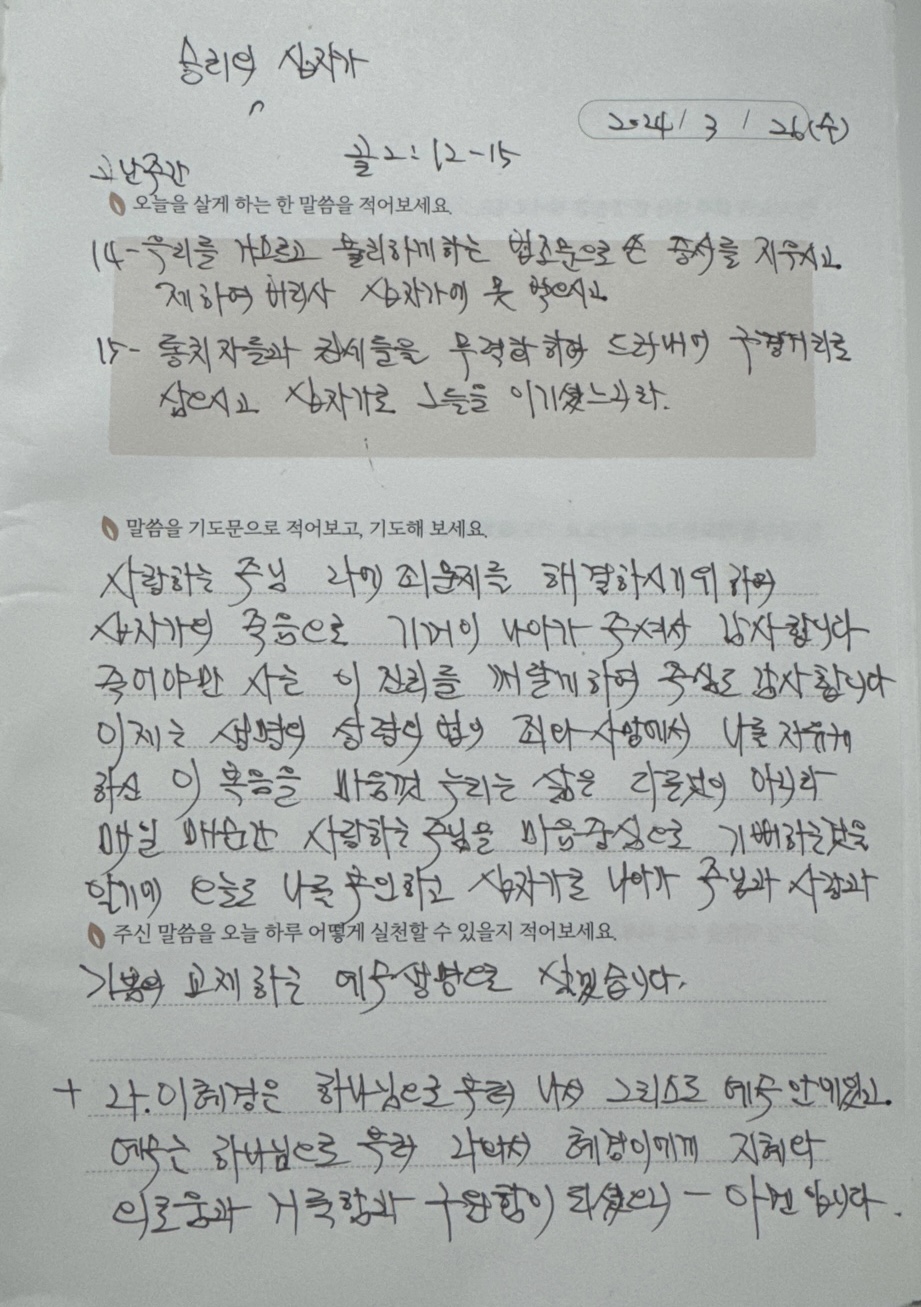 승리의 십자가
2024 / 3 / 26(수)
골 2 : 12 - 15
고난주간
오늘을 살게 하는 한 말씀을 적어보세요.
14 - 우리를 거스르고 불리하게 하는 법조문으로 쓴 증서를 지우시고
제하여 버리사 십자가에 못 박으시고
15 - 통치자들과 권세들을 무력화하여 드러내어 구경거리로
삼으시고 십자가로 그들을 이기셨느니라.
말씀을 기도문으로 적어보고, 기도해 보세요.
사랑하는 주님 나의 죄문제를 해결하시기 위하여
십자가의 죽음으로 기꺼이 나아가 주셔서 감사합니다
죽어야만 사는 이 진리를 깨닫게하여 주심도 감사합니다
이제는 생명의 성령의 법이 죄와 사망에서 나를 자유케
하신 이 복음을 마음껏 누리는 삶은 다른것이 아니라
매일 매순간 사랑하는 주님을 마음중심으로 기뻐하는것을
알기에 오늘도 나를 부인하고 십자가로 나아가 주님과 사랑과
주신 말씀을 오늘 하루 어떻게 실천할 수 있을지 적어보세요.
기쁨의 교제하는 예수생명으로 살겠습니다.
+ 나.이혜경은 하나님으로부터 나서 그리스도 예수 안에있고.
예수는 하나님으로 부터 나와서 혜경이에게 지혜와
의로움과 거룩함과 구원함이 되셨으니 - 아멘입니다.